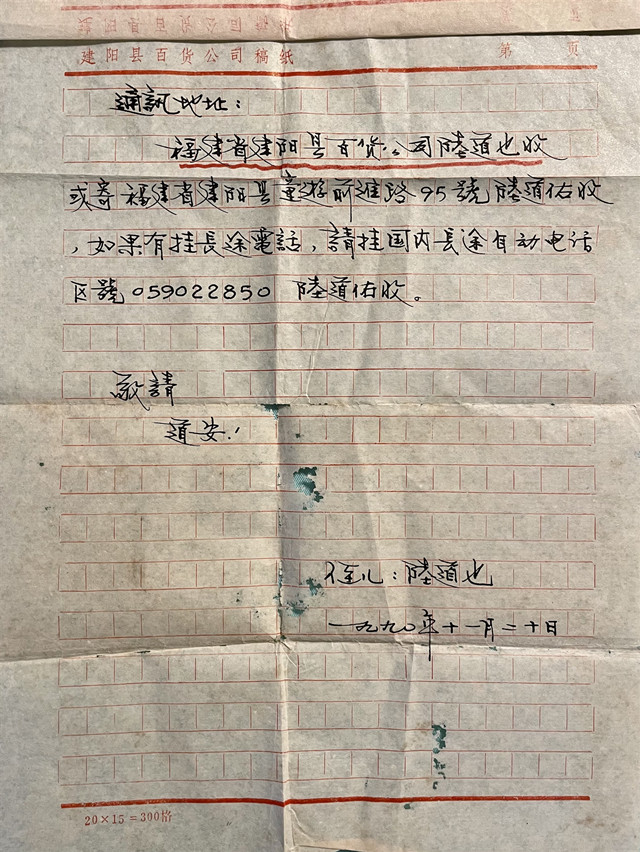 建阳县百货公司稿纸 第 页
通訊地址：
福建省建阳县百货公司陸道也收
或寄福建省建阳县童游前進路95號陸道佑收
，如果有挂長途電話，請挂国内長途自动电话
区號059022850 陸道佑收。
敬請
道安！
侄儿：陸道也
一九九〇年十一月二十日
20×15＝300格